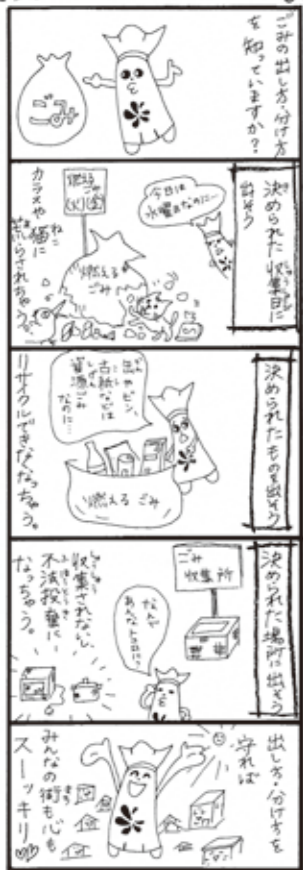 ごみの出し方・分け方
を知っていますか?
ごみ
決められた収集日に
出そう
今日は
水曜日なのに…
燃える
ごみ
(火)(金)
燃える
ごみ
カラスや猫に
ねこ
荒らされちゃう。
決められたものを出そう
缶やビン、
古紙などは
資源ごみ
なのに…
燃える ごみ
リサイクルできなくなっちゃう。
決められた場所に出そう
ごみ
収集所
なんで
あんなトコに?
収集されないし、
不法投棄に
なっちゃう。
出し方・分け方を
守れば
みんなの街も心も
スーッキリ♡♡